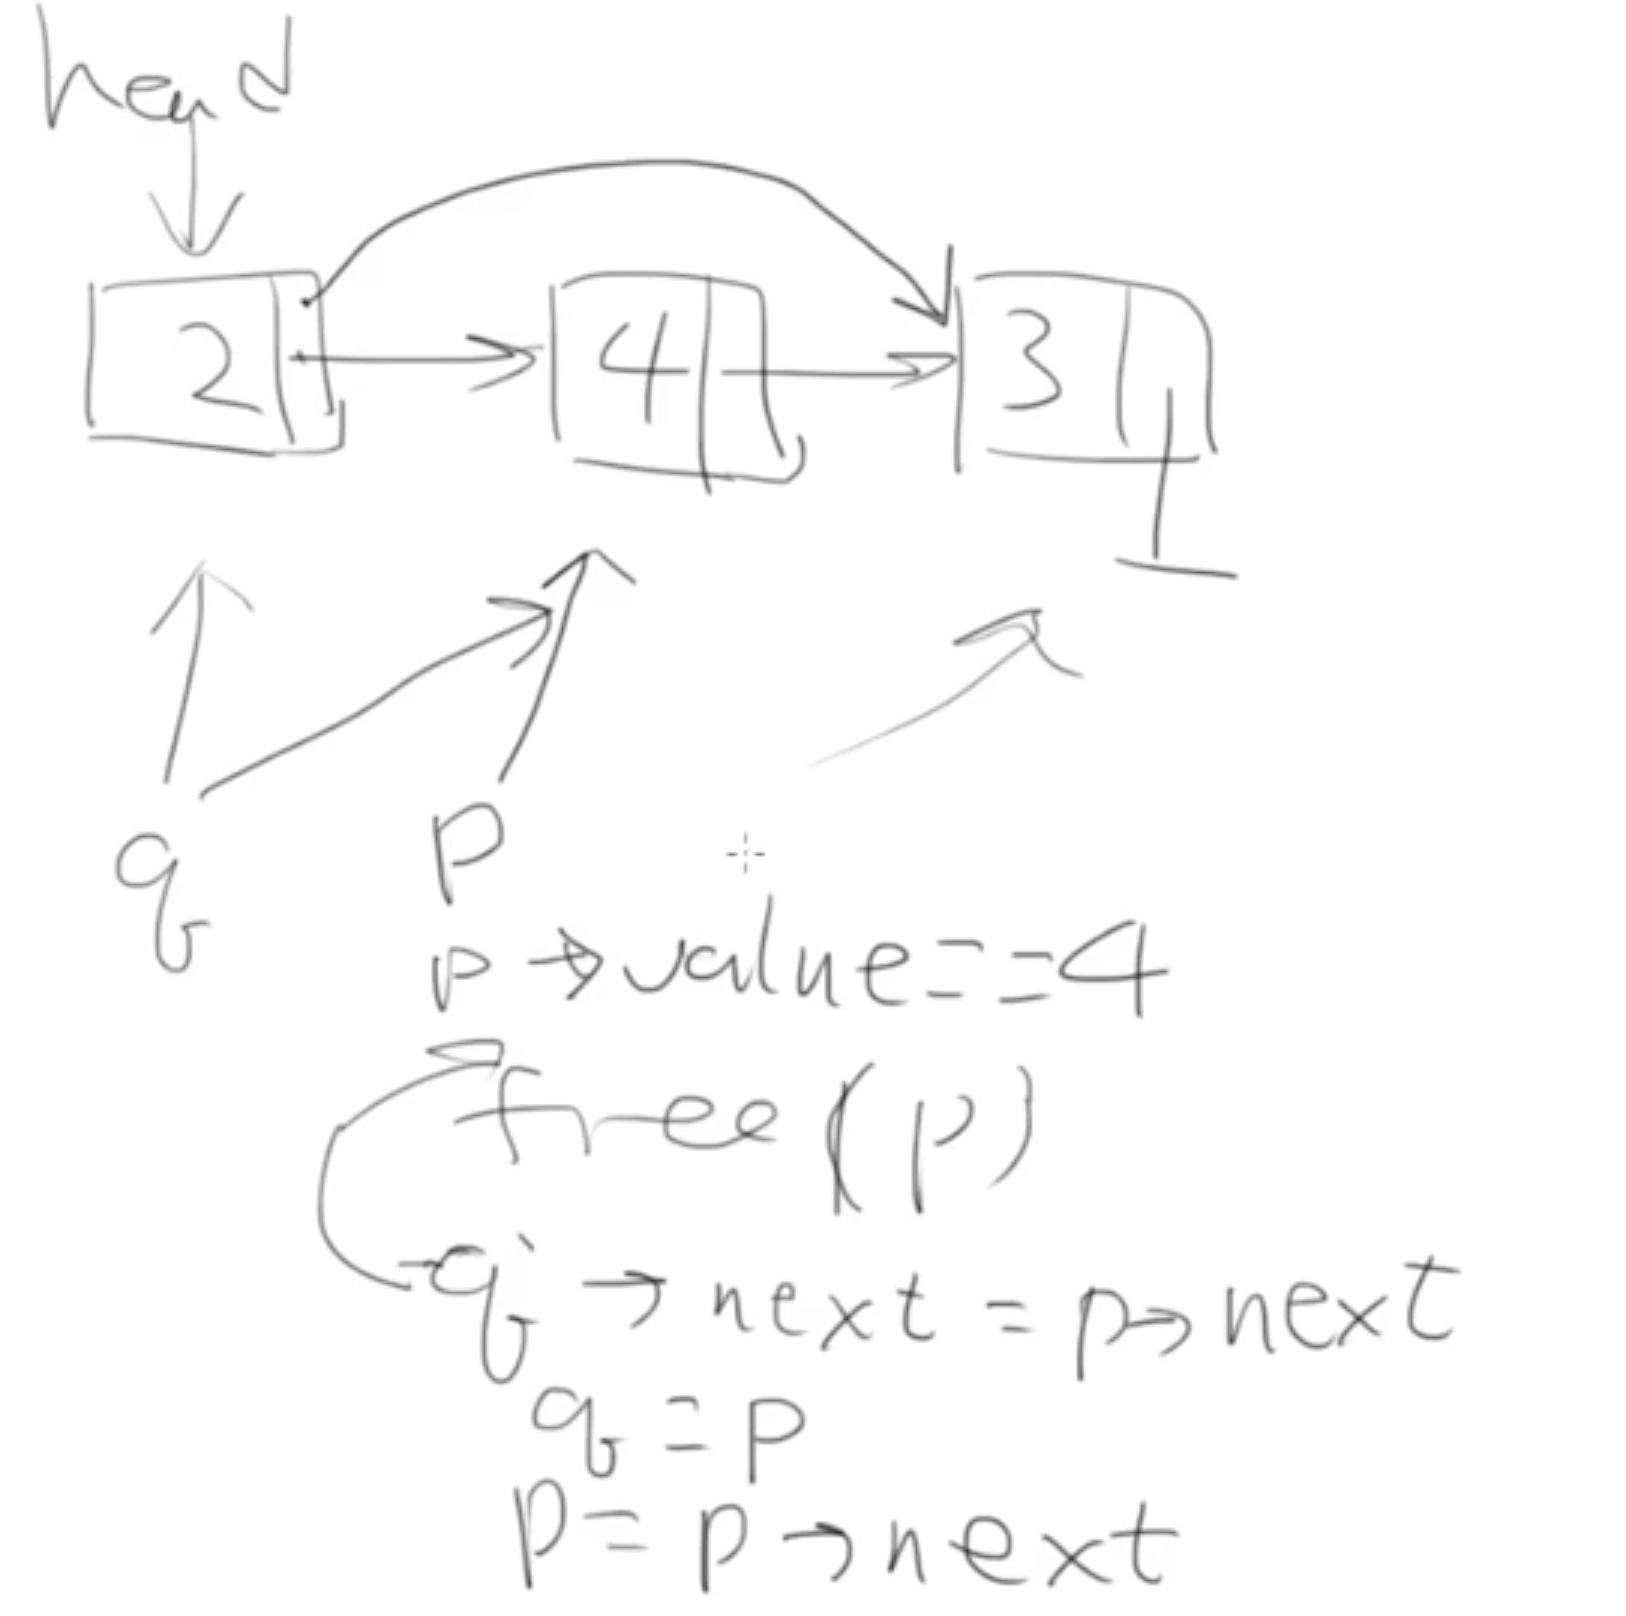 head
2 4 3
q p
p→value==4
free(p)
q→next=p→next
q=p
p=p→next